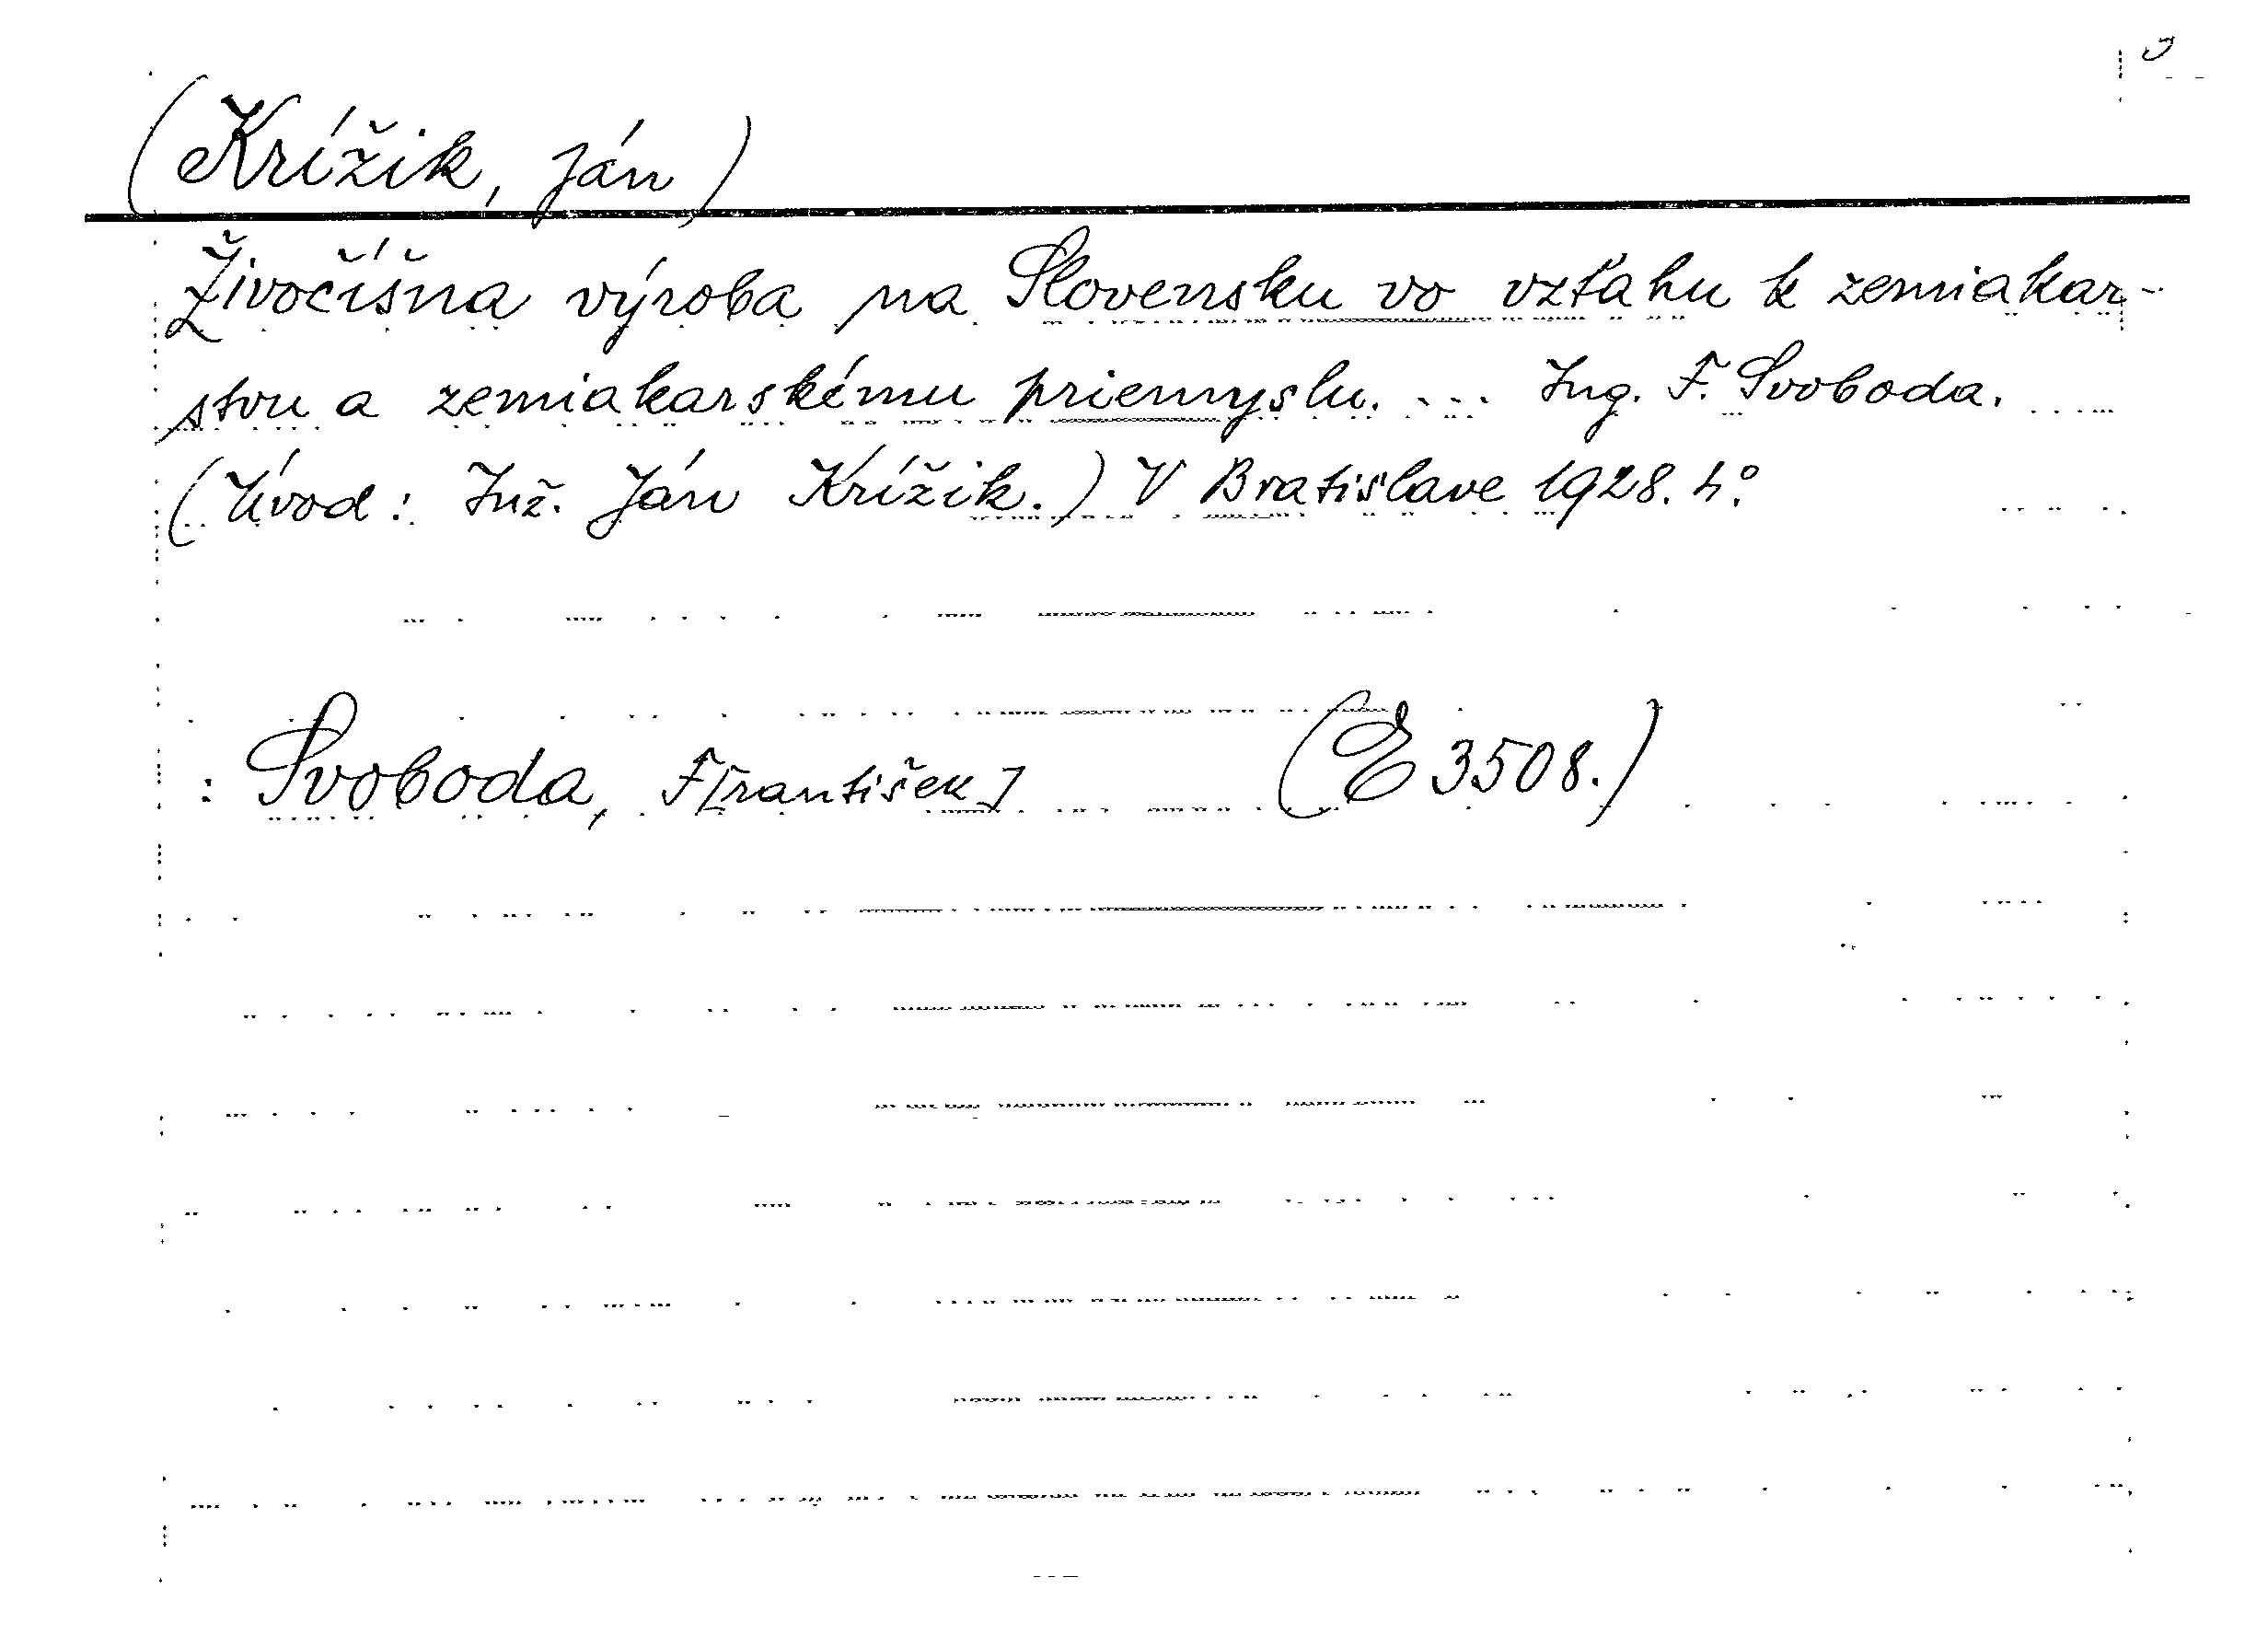 (Krížik, Ján)
Živočíšna výroba na Slovensku vo vzťahu k zemiakar-
stvu a zemiakarskému priemyslu. ... Ing. F. Svoboda.
(Úvod: Inž. Ján Krížik.) V Bratislave 1928. 4°.
: Svoboda, F[rantišek] (E 3508.)